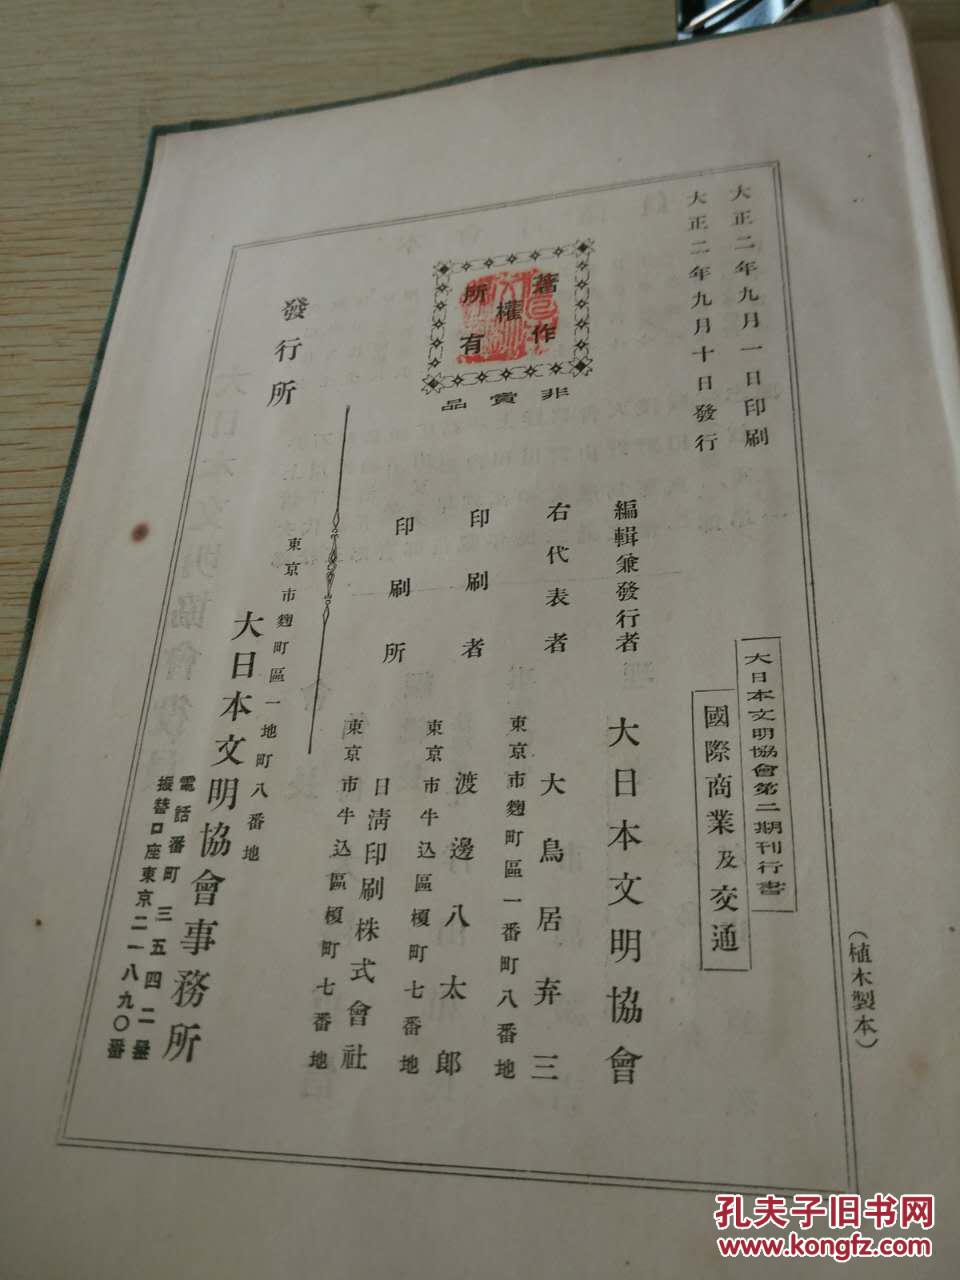 大正二年九月一日印刷
大正二年九月十日發行
著作
權
所有
非賣品
大日本文明協會第二期刊行書
國際商業及交通
編輯兼發行者
大日本文明協會
右代表者
東京市麴町區一番町八番地
大鳥居弃三
印刷者
東京市牛込區榎町七番地
渡邊八太郎
印刷所
東京市牛込區榎町七番地
日清印刷株式會社
發行所
東京市麴町區一地町八番地
大日本文明協會事務所
電話番町三五四二番
振替口座東京二一八九〇番
(植木製本)
孔夫子旧书网
www.kongfz.com